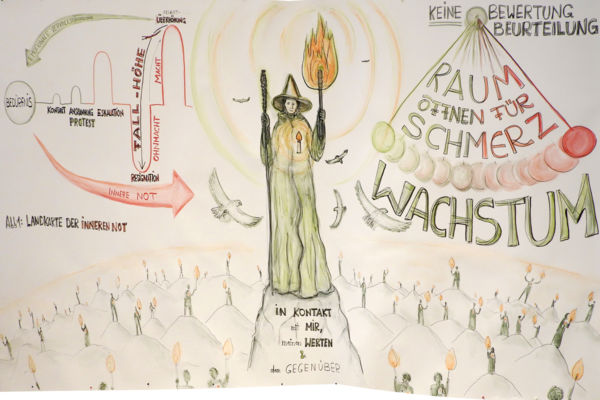 SELBST-
ÜBERHÖHUNG
BEDÜRFNIS
KONTAKT ANSPANNUNG ESKALATION
PROTEST
TALL-HÖHE
MACHT
OHNMACHT
RESIGNATION
INNERE NOT
Abb1: LANDKARTE DER INNEREN NOT
KEINE BEWERTUNG
BEURTEILUNG
RAUM
ÖFFNEN FÜR
SCHMERZ
WACHSTUM
iN KONTAKT
mit MIR,
meinen WERTEN
&
dem GEGENÜBER